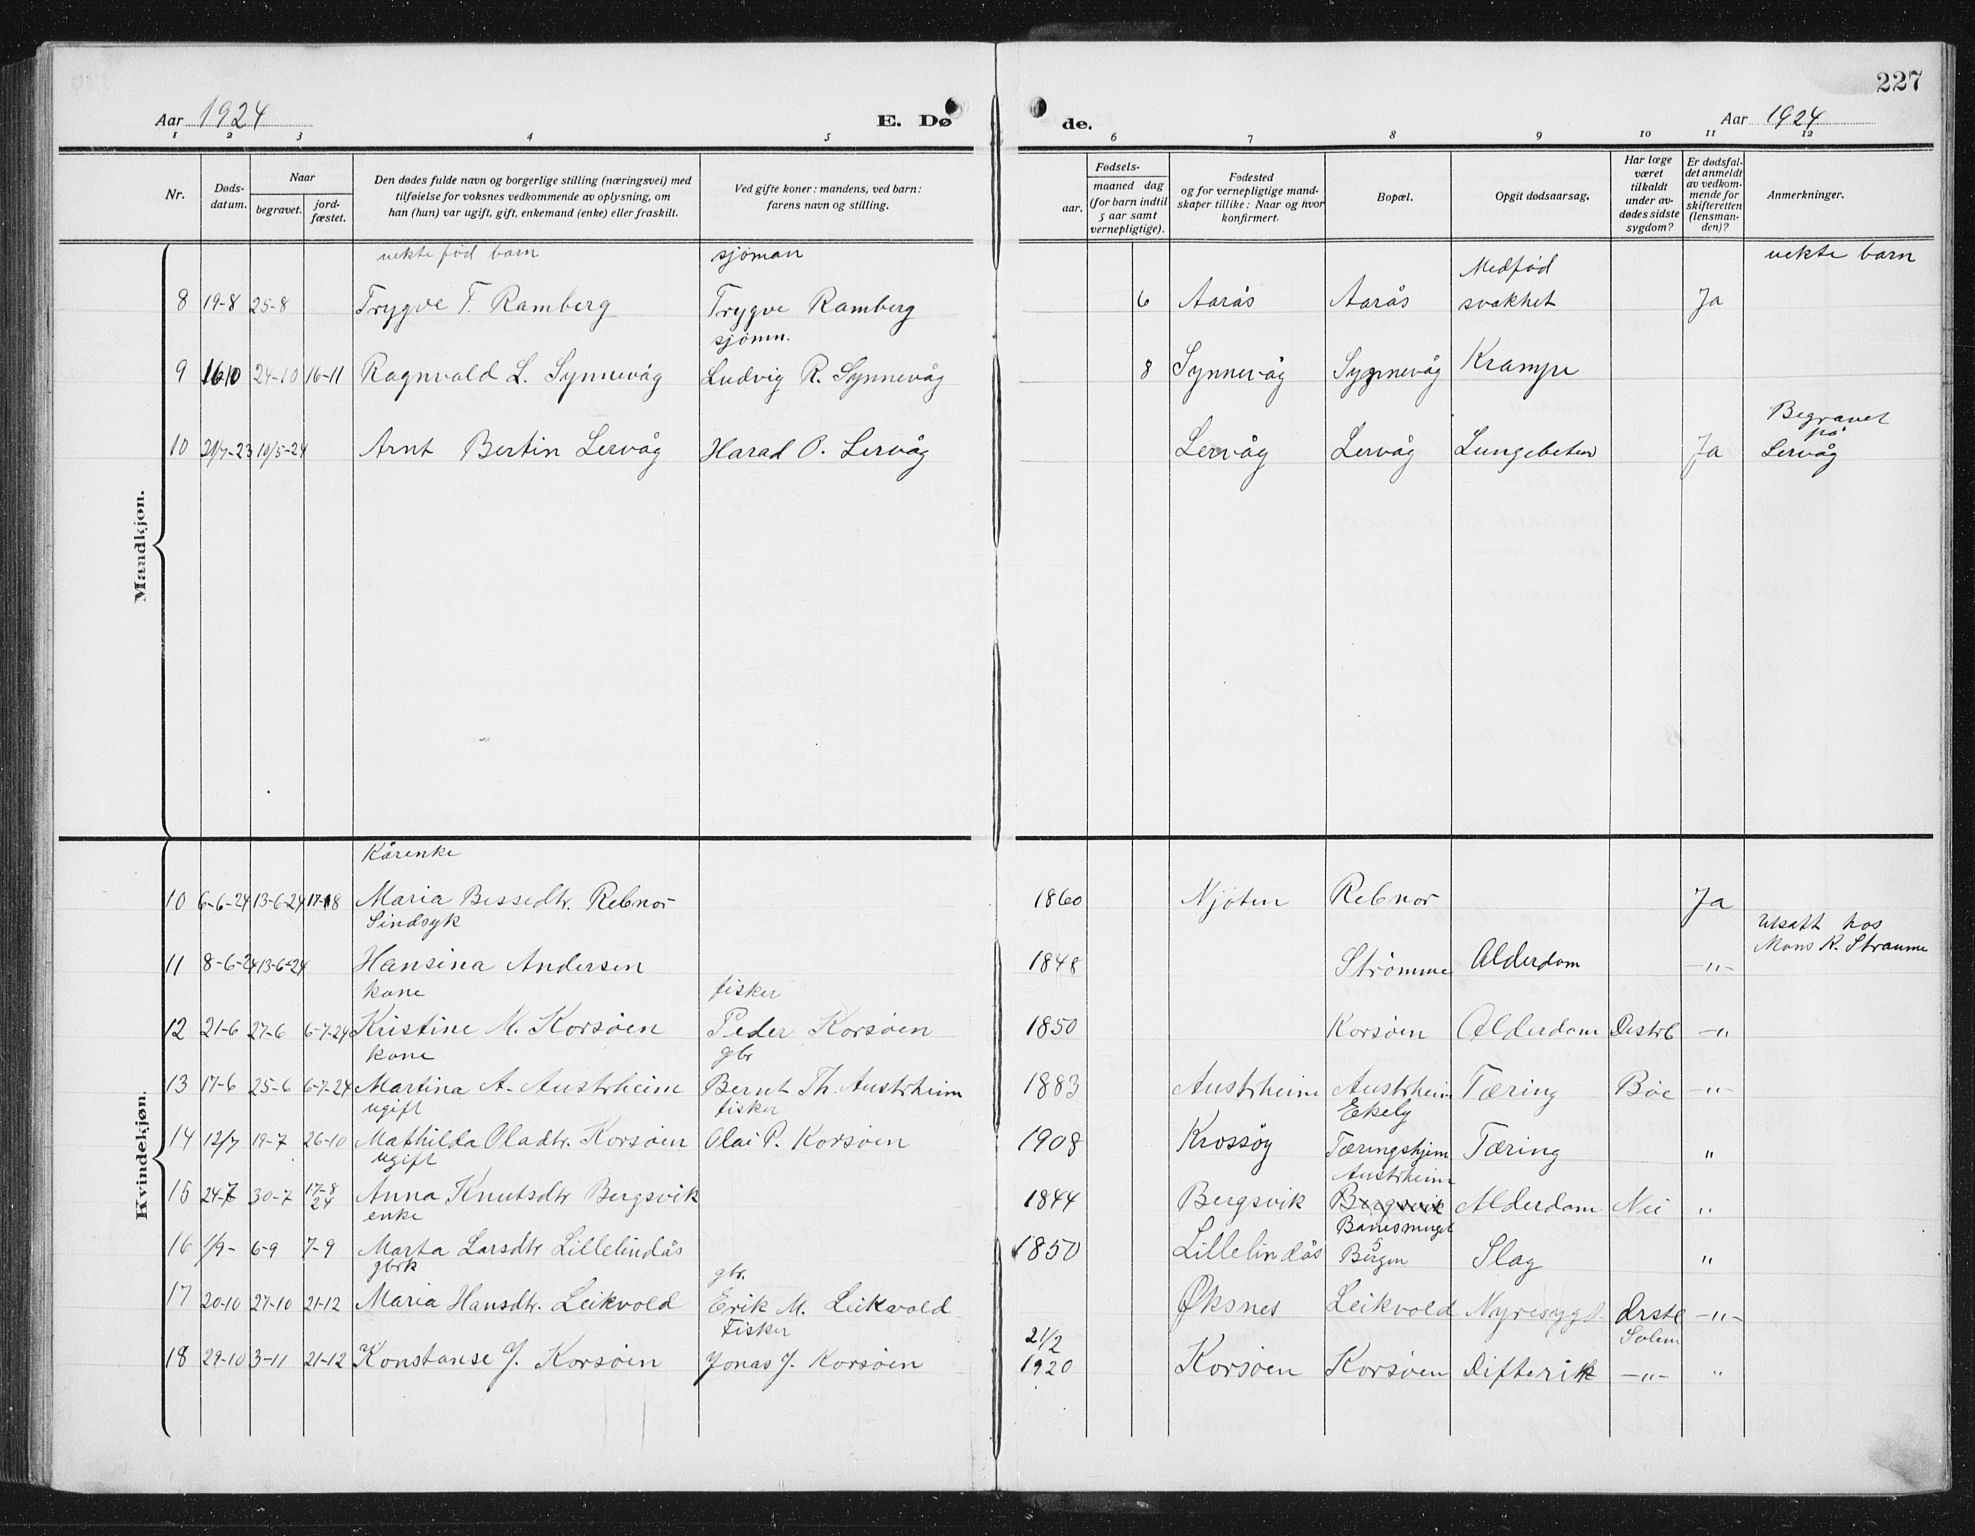 227
Aar 1924 E. Dø de. Aar 1924
1 2 3 4 5 6 7 8 9 10 11 12
Nr.
Døds-
datum.
Naar
begravet.
jord-
fæstet.
Den dødes fulde navn og borgerlige stilling (næringsvei) med
tilføielse for voksnes vedkommende av oplysning, om
han (hun) var ugift, gift, enkemand (enke) eller fraskilt.
Ved gifte koner: mandens, ved barn:
farens navn og stilling.
Fødsels-
aar.
maaned dag
(for barn indtil
5 aar samt
vernepligtige).
Fødested
og for vernepligtige mand-
skaper tillike: Naar og hvor
konfirmert.
Bopæl.
Opgit dødsaarsag.
Har læge
været
tilkaldt
under av-
dødes sidste
sygdom?
Er dødsfal-
det anmeldt
av vedkom-
mende for
skifteretten
(lensman-
den)?
Anmerkninger.
Mandkjøn.
uekte fød barn sjöman Medfød uekte barn
8 19-8 25-8 Trygve T. Ramberg Trygve Ramberg 6 Aarås Aarås svakhet Ja
sjömn.
9 16/10 24-10 16-11 Ragnvald L. Synnevåg Ludvig R. Synnevåg 8 Synnevåg Synnevåg Krampe
Begravet
på
10 21/7-23 10/5-24 Arnt Bertin Lervåg Harad O. Lervåg Lervåg Lervåg Lungebeten Ja Lervåg
Kvindekjøn.
Kårenke
10 6-6-24 13-6-24 17-8 Maria Bessedtr. Rebnor 1860 Njøten Rebnor Ja
Sindsyk Utsatt hos
Mons R. Straume
11 8-6-24 13-6-24 Hansina Andersen 1848 Strømme Alderdom -"-
kone fisker
12 21-6 27-6 6-7-24 Kristine M. Korsøen Peder Korsøen 1850 Korsøen Alderdom Distrl -"
kone gbr
13 17-6 25-6 6-7-24 Martina A. Austrheim Bernt Th. Austrheim 1883 Austrheim Austrheim Tæring Böe -"-
ugift fisker Ekely
14 12/7 19-7 26-10 Mathilda Oladtr. Korsøen Olai P. Korsøen 1908 Krossøy Tæringshjem Tæring "
ugift Austrheim
15 24-7 30-7 17-8
24 Anna Knutsdtr Bergsvik 1844 Bergsvik Bergsvik Alderdom Nei "
enke
16 1/9- 6-9 7-9 Marta Larsdtr Lillelindås 1850 Lillelindås Bergen Slag "
gbrk gbr.
17 20-10 27-10 21-12 Maria Hansdtr. Leikvold Erik M. Leikvold Øksnes Leikvold Nyresygd. Ørstl -"-
Fisker 21/2 Solem
18 29-10 3-11 21-12 Konstanse J. Korsøen Jonas J. Korsøen 1920 Korsøen Korsøen Difterik -"- "